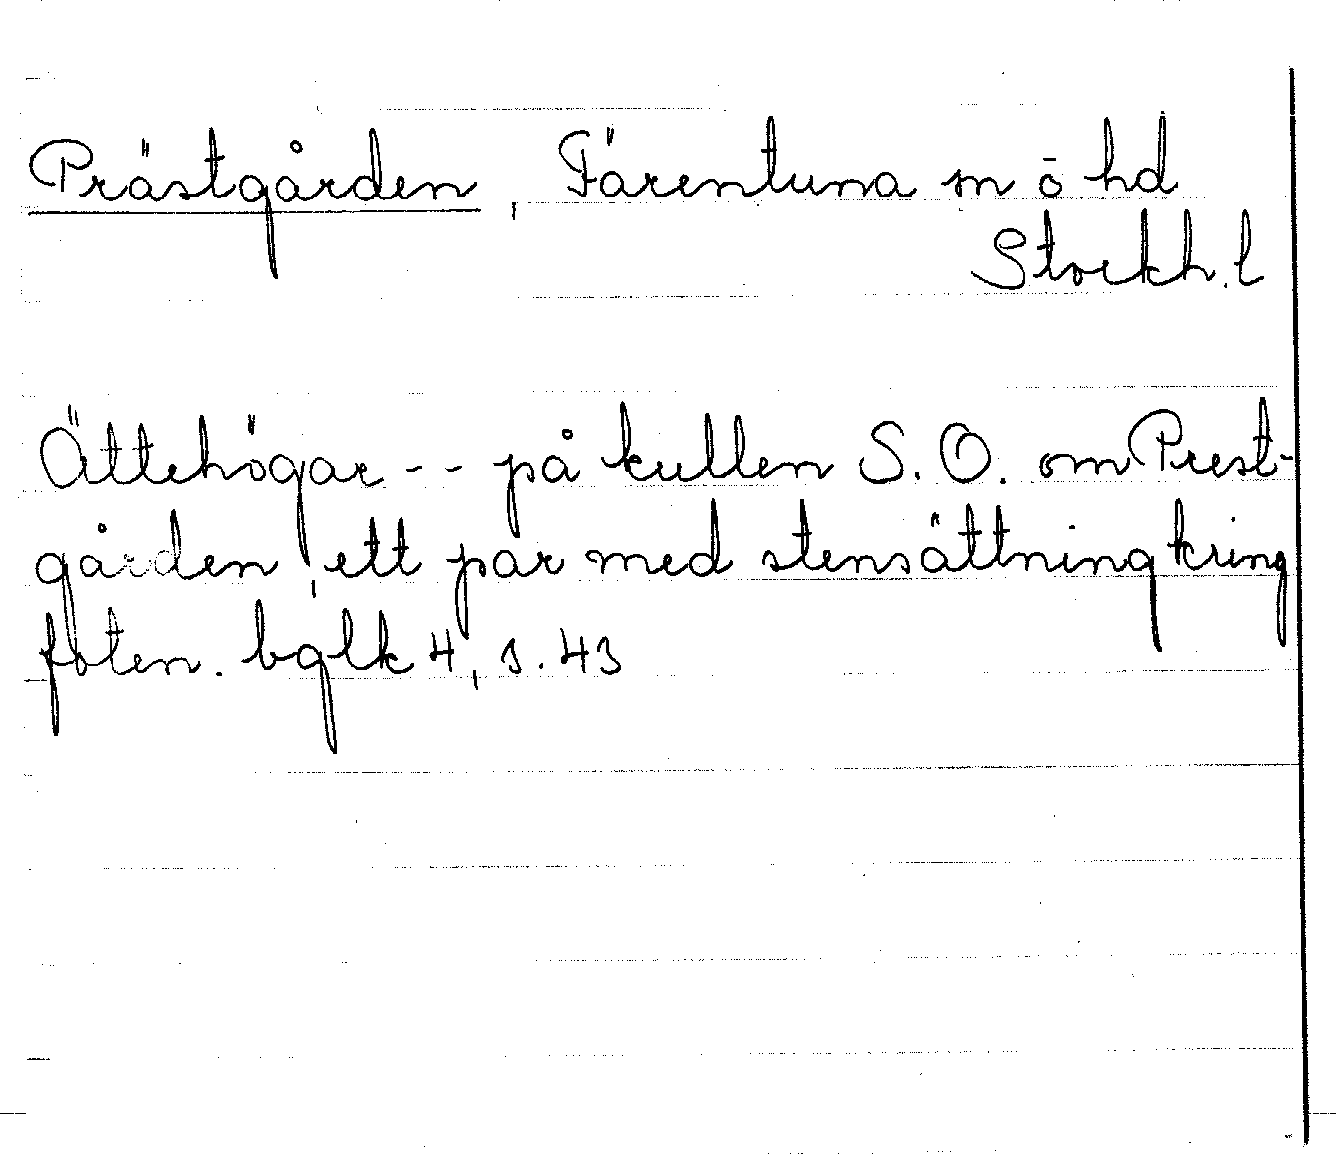 Prästgården, Färentuna sn ō hd
Stockh. l
Ättehögar -- på kullen S.O. om Prest-
gården, ett par med stensättning kring
foten. bglk 4, s. 43